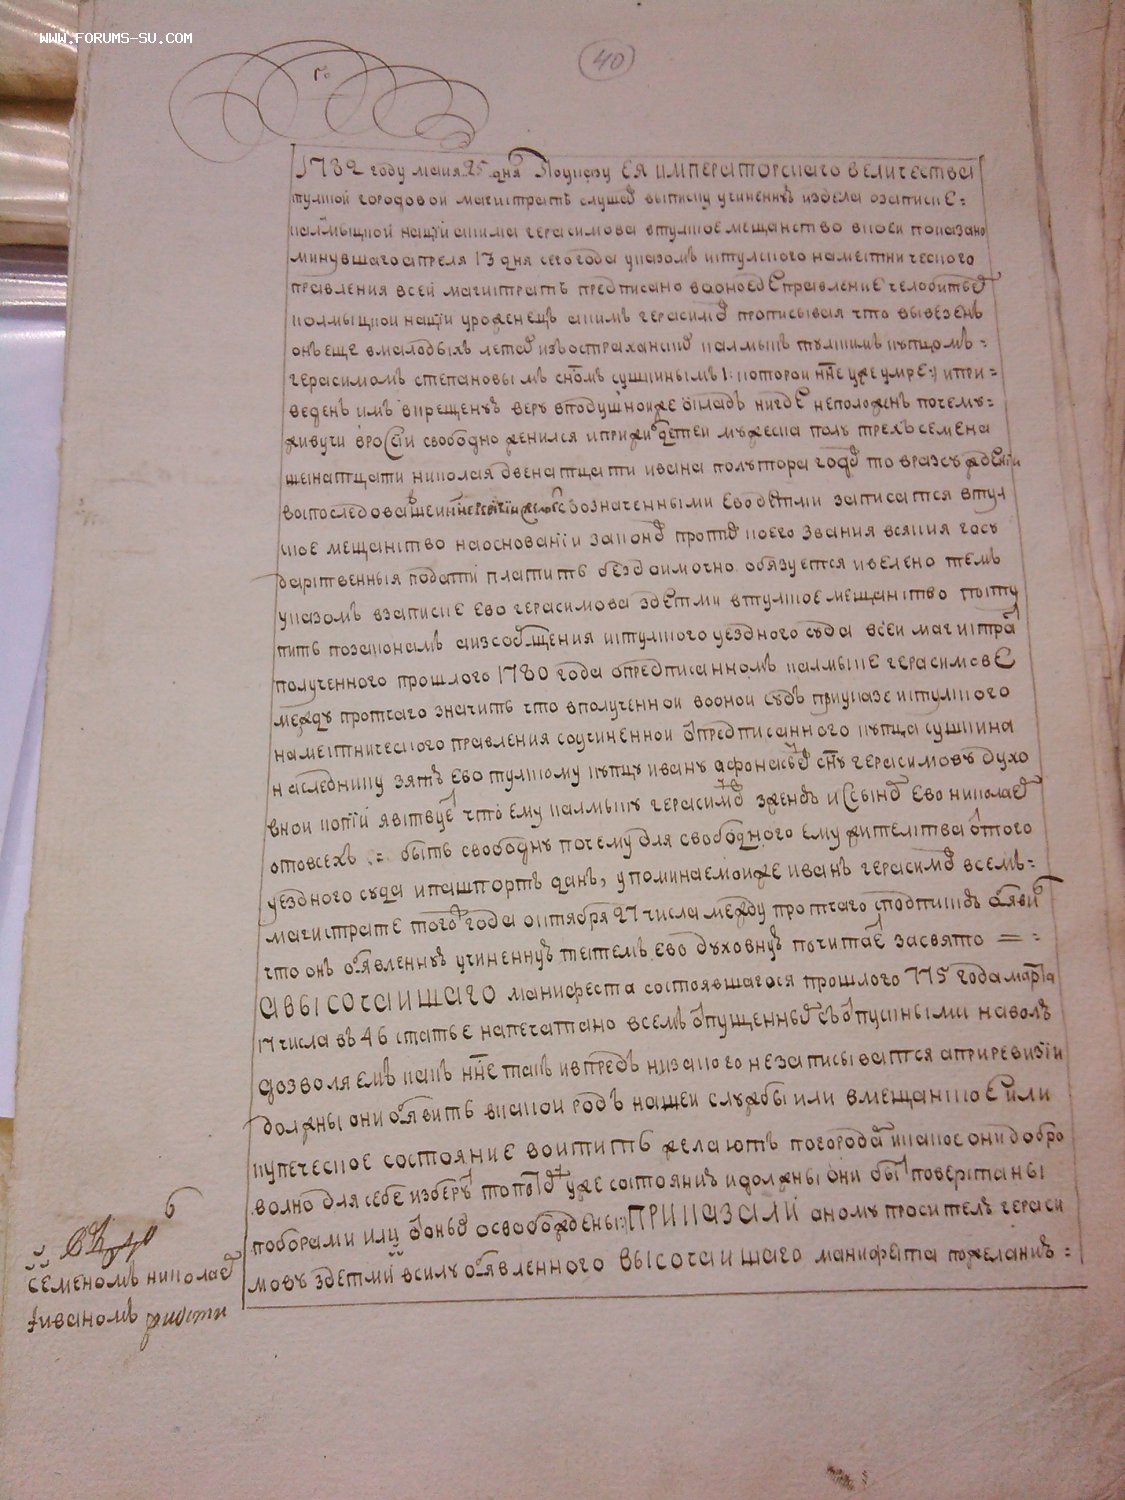 WWW.FORUMS-SU.COM
40
1782 году маия 25 дня По указу ЕЯ ИМПЕРАТОРСКАГО ВЕЛИЧЕСТВА
тулской городовой магистратъ слушав выписку учиненнуъ издела озаписке=
калмыцкой нации акима герасимова втулское мещанство вкоей показано
минувшаго апреля 13 дня сего года указомъ ис тулского наместнического
правления всей магистратъ предписано воноеде правление челобитьев
калмыцкой нации уроженецъ аким герасимов прописывая что вывезенъ
онъ еще вмалодыхъ летев изъ остраханских калмыкъ тулскимъ купцомъ=
герасимомъ степановымъ сномъ сушкинымъ /: которой нне уже умре :/ ипри=
веденъ имъ вкрещеную веру вподушной же окладъ нигде неположенъ почему=
живучи вросии свободно женился иприжил детей мужеска полу трехъ семена
шеснатцати николая двенатцати ивана полутора годов то вразсуждении
вапоследовавшей с означенными ево детми записатся втул
ское мещанство наосновании законов протцив коего звания всякия госу
дарственныя подати платить бездоимочно обязуется ивелено темъ
указомъ взаписке ево герасимова здетми втулское мещанство поступ
пить позаконамъ аизсообщения ис тулского уездного суда всей магистрат
полученного прошлого 1780 года опредписанномъ калмыке герасимове
между протчаго значитъ что вполученной воной судъ приуказе ис тулского
наместнического правления соучиненной опредписанного купца сушкина
наследнику зятъ ево тулскому купцу ивану афонасьеву сну герасимову духо
вной копии явствует что ему калмыку герасимову зженою исыном ево николаев
отовсехъ := быть свободну почему для свободного ему жителства отого
уездного суда ипашпортъ данъ, упоминаемой же иванъ герасимов всемъ=
магистрате того года октября 27 числа между протчаго подпискою обявил
что онъ обявленную учиненную тестемъ ево духовную почитает засвято = :
АВЫСОЧАИШАГО манифеста состоявшагося прошлого 775 года марта
17 числа въ 46 статье напечатано всемъ отпущенным съотпускными наволю
дозволяемъ какъ нне такъ ивпредь низакого незаписыватся априревизии
должны они обявить вкакой родъ нашей службы или вмещанское или
купеческое состояние воитить желаютъ погородам икакое они добро
волно для себе изберут потому уже состоянию идолжны они быть поверстаны
поборами или оных освобождены: ПРИКАЗАЛИ оному просителю гераси
мову здетми всилу обявленного ВЫСОЧАИШАГО манифеста пожеланию=
семеномъ николаем
ииваномъ